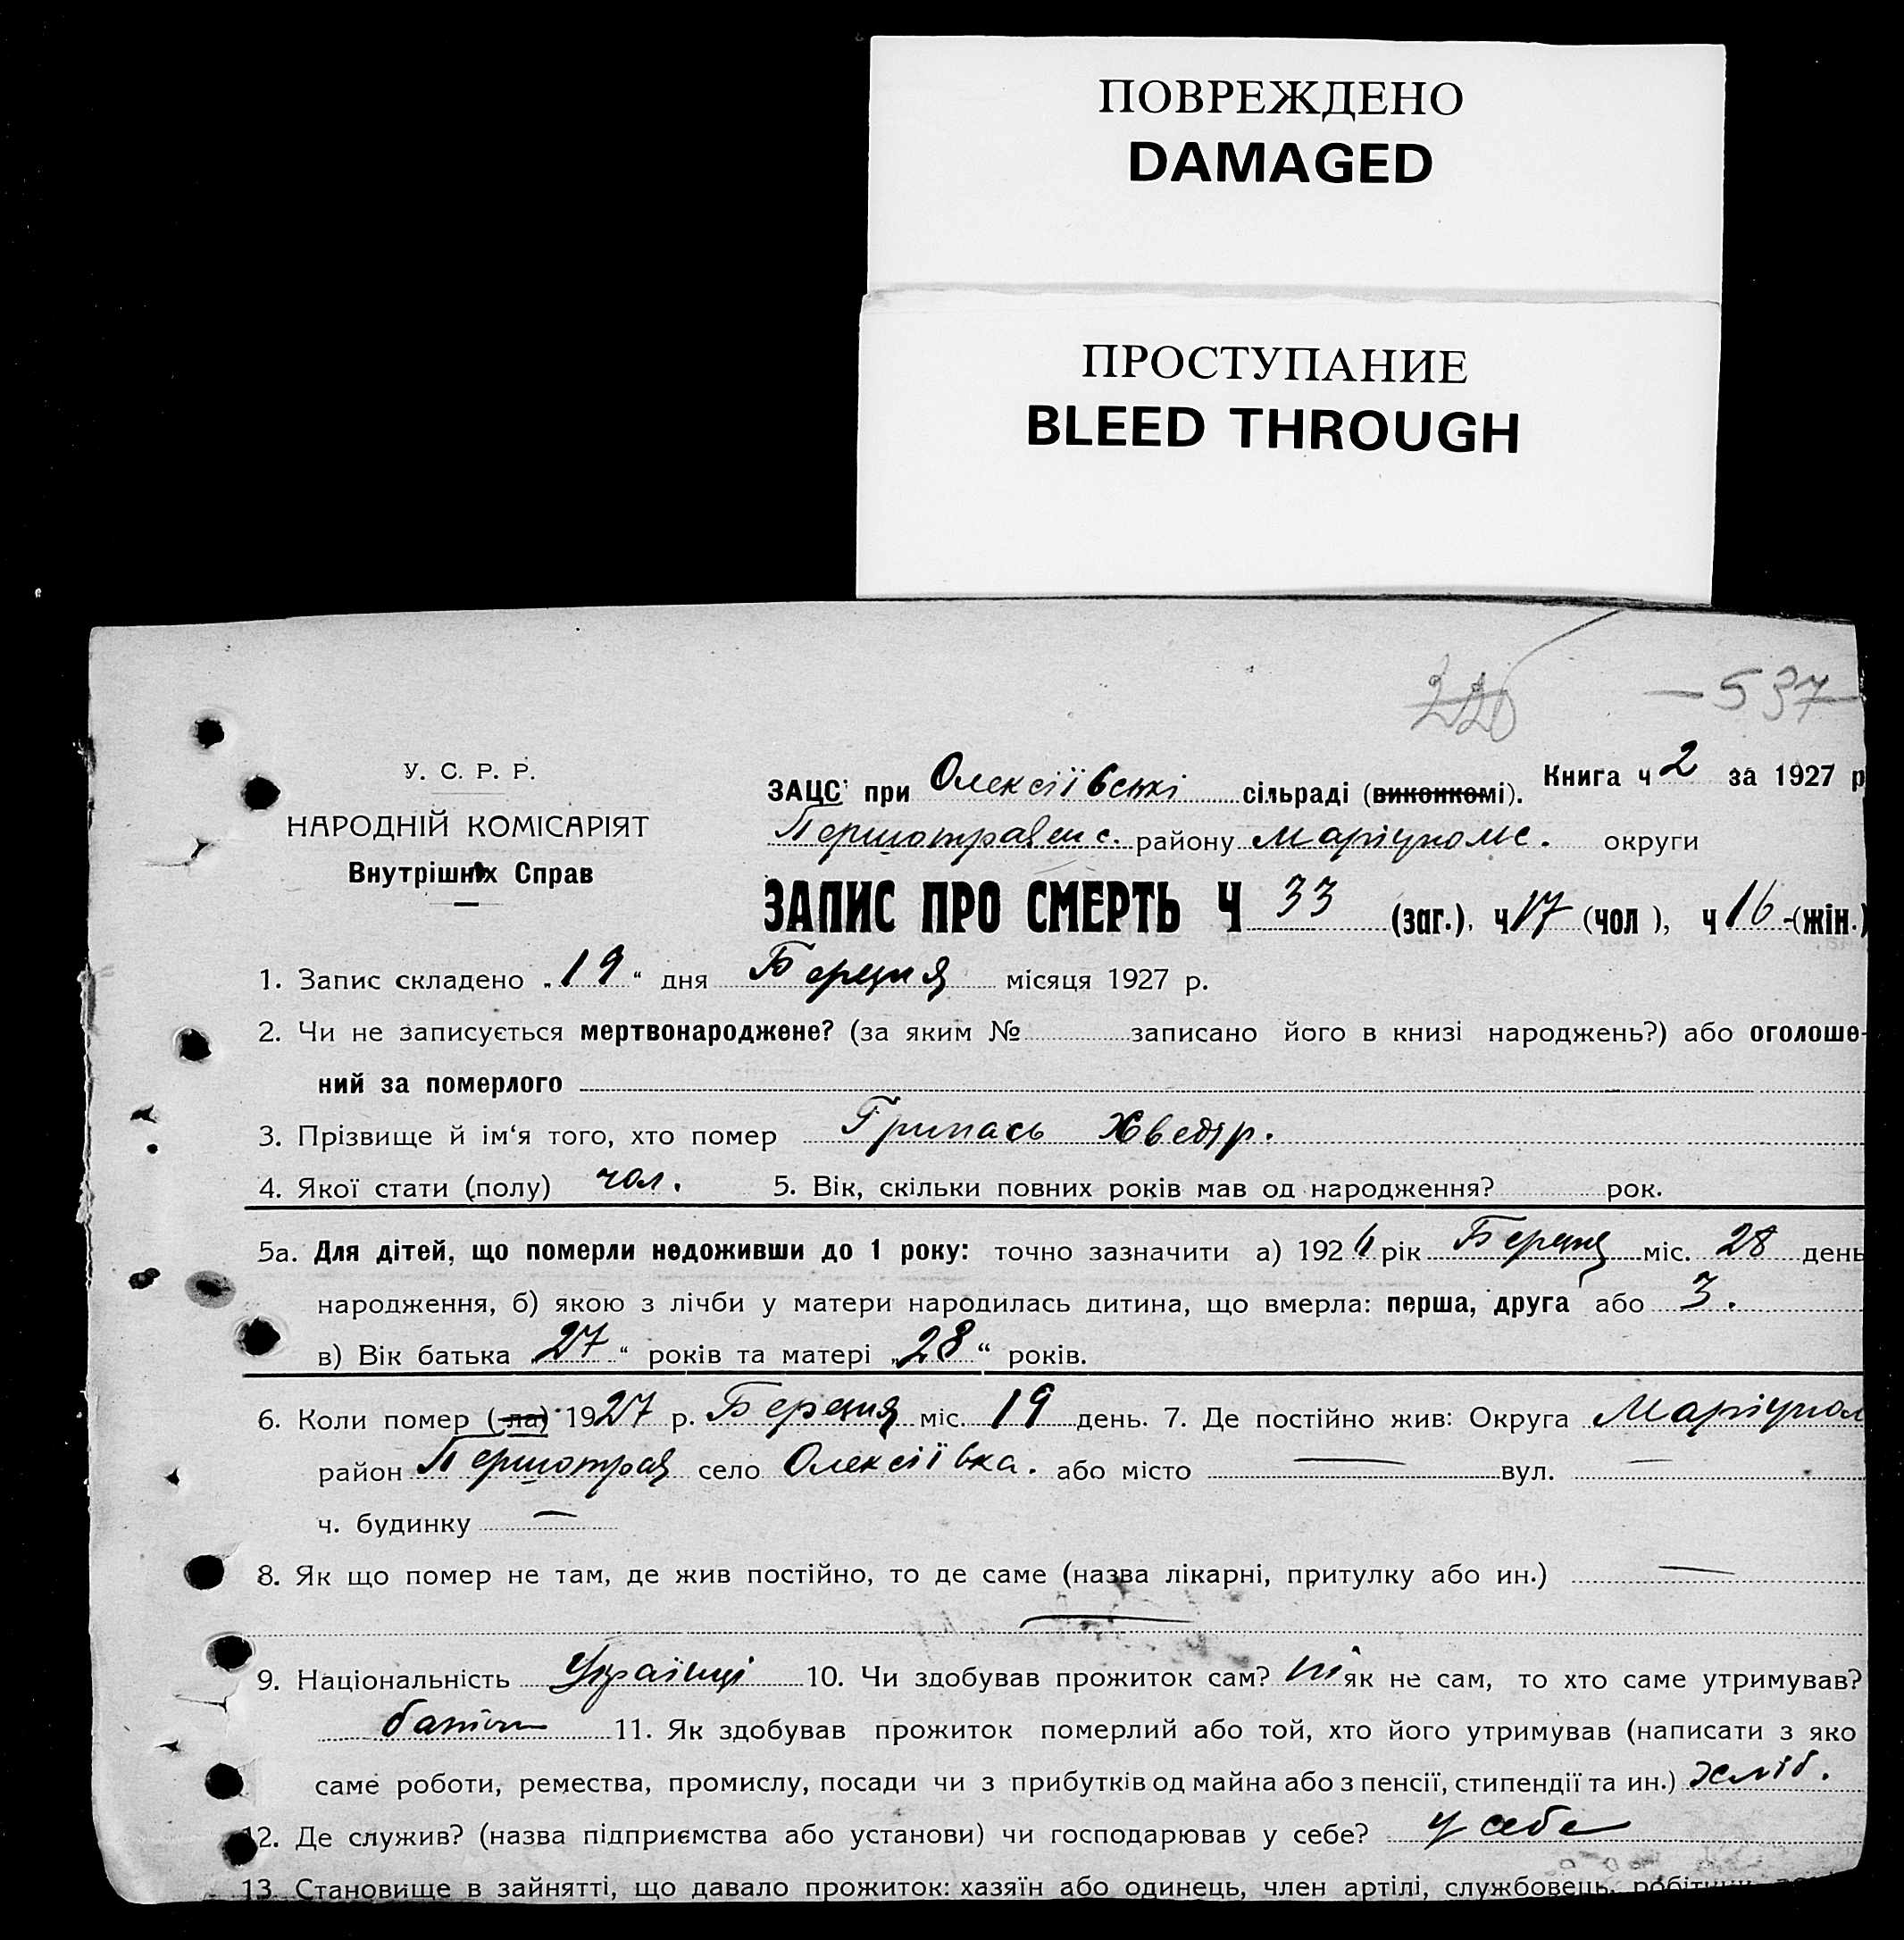 ПОВРЕЖДЕНО
DAMAGED
ПРОСТУПАНИЕ
BLEED THROUGH
— 537
У. С. Р. Р.
НАРОДНІЙ КОМІСАРІЯТ
Внутрішніх Справ
Книга ч 2 за 1927 р
ЗАЦС при Олексіївські сільраді (виконкомі).
Першотравенс. району Маріупольс. округи
ЗАПИС ПРО СМЕРТЬ Ч 33 (заг.), ч 17 (чол), ч 16 (жін.)
1. Запис складено „19“ дня Березня місяця 1927 р.
2. Чи не записується мертвонароджене? (за яким № записано його в книзі народжень?) або оголоше-
ний за померлого
3. Прізвище й ім'я того, хто помер Гринась Хведір.
4. Якої стати (полу) чол. 5. Вік, скільки повних років мав од народження? рок.
5а. Для дітей, що померли недоживши до 1 року: точно зазначити а) 192 рік Березня міс. 28 день
народження, б) якою з лічби у матери народилась дитина, що вмерла: перша, друга або 3.
в) Вік батька „27“ років та матері „28“ років.
6. Коли помер (-ла) 1927 р. Березня міс. 19 день. 7. Де постійно жив: Округа Маріупол
район Першотрав село Олексіївка. або місто — вул. —
ч. будинку —
8. Як що помер не там, де жив постійно, то де саме (назва лікарні, притулку або ин.) —
—
9. Національність Українці 10. Чи здобував прожиток сам? ні як не сам, то хто саме утримував?
батьки 11. Як здобував прожиток померлий або той, хто його утримував (написати з яко
саме роботи, ремества, промислу, посади чи з прибутків од майна або з пенсії, стипендії та ин.) хліб.
12. Де служив? (назва підприємства або установи) чи господарював у себе? у себе
13. Становище в зайнятті, що давало прожиток: хазяїн або одинець, член артілі, службовець, робітник